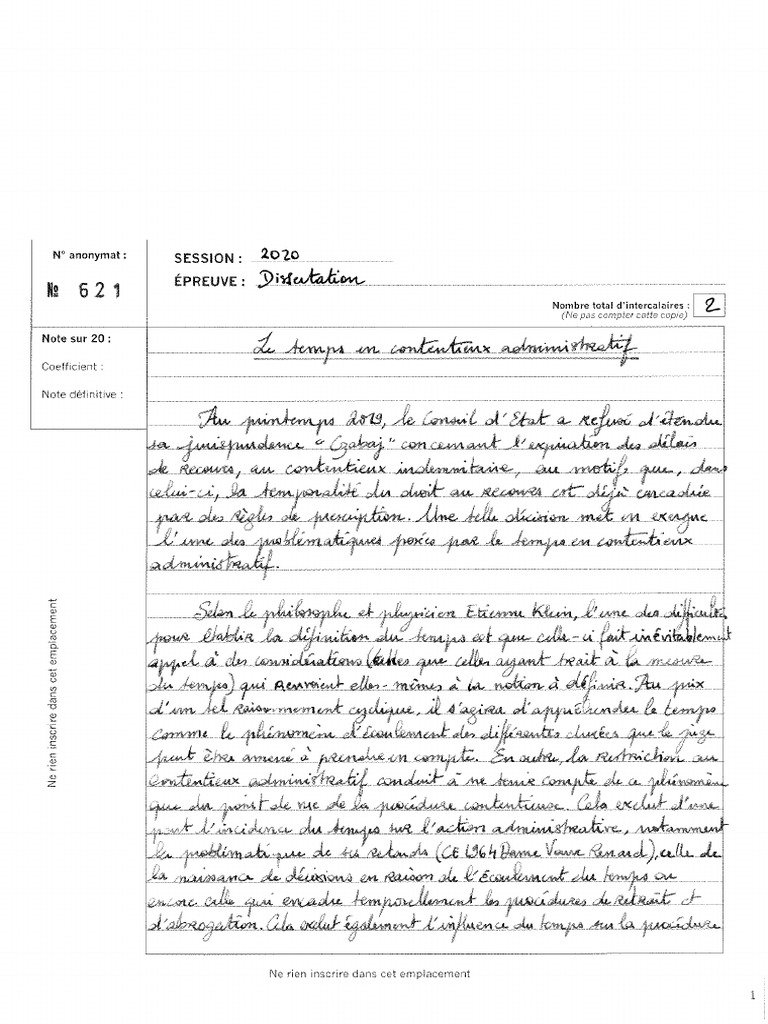 N° anonymat :
№ 621
SESSION : 2020
ÉPREUVE : Dissertation
Nombre total d'intercalaires : 2
(Ne pas compter cette copie)
Note sur 20 :
Coefficient :
Note définitive :
Le temps en contentieux administratif
Au printemps 2019, le Conseil d'Etat a refusé d'étendre
sa jurisprudence "Czabaj" concernant l'expiration des délais
de recours, au contentieux indemnitaire, au motifs que, dans
celui-ci, la temporalité du droit au recours est déjà encadrée
par des règles de prescription. Une telle décision met en exergue
l'une des problématiques posées par le temps en contentieux
administratif.
Selon le philosophe et physicien Etienne Klein, l'une des difficultés
pour établir la définition du temps est que celle-ci fait inévitablement
appel à des considérations (telles que celles ayant trait à la mesure
du temps) qui renvoient elles-mêmes à la notion à définir. Au prix
d'un tel raisonnement cyclique, il s'agira d'appréhender le temps
comme le phénomène d'écoulement des différentes durées que le juge
peut être amené à prendre en compte. En outre, la restriction au
contentieux administratif conduit à ne tenir compte de ce phénomène
que du point de vue de la procédure contentieuse. Cela exclut d'une
part l'incidence du temps sur l'action administrative, notamment
la problématique de ses retards (CE 1964 Dame Veuve Renard), celle de
la naissance de décisions en raison de l'écoulement du temps ou
encore celle qui encadre temporellement les procédures de retrait et
d'abrogation. Cela exclut également l'influence du temps sur la procédure
Ne rien inscrire dans cet emplacement
Ne rien inscrire dans cet emplacement
1